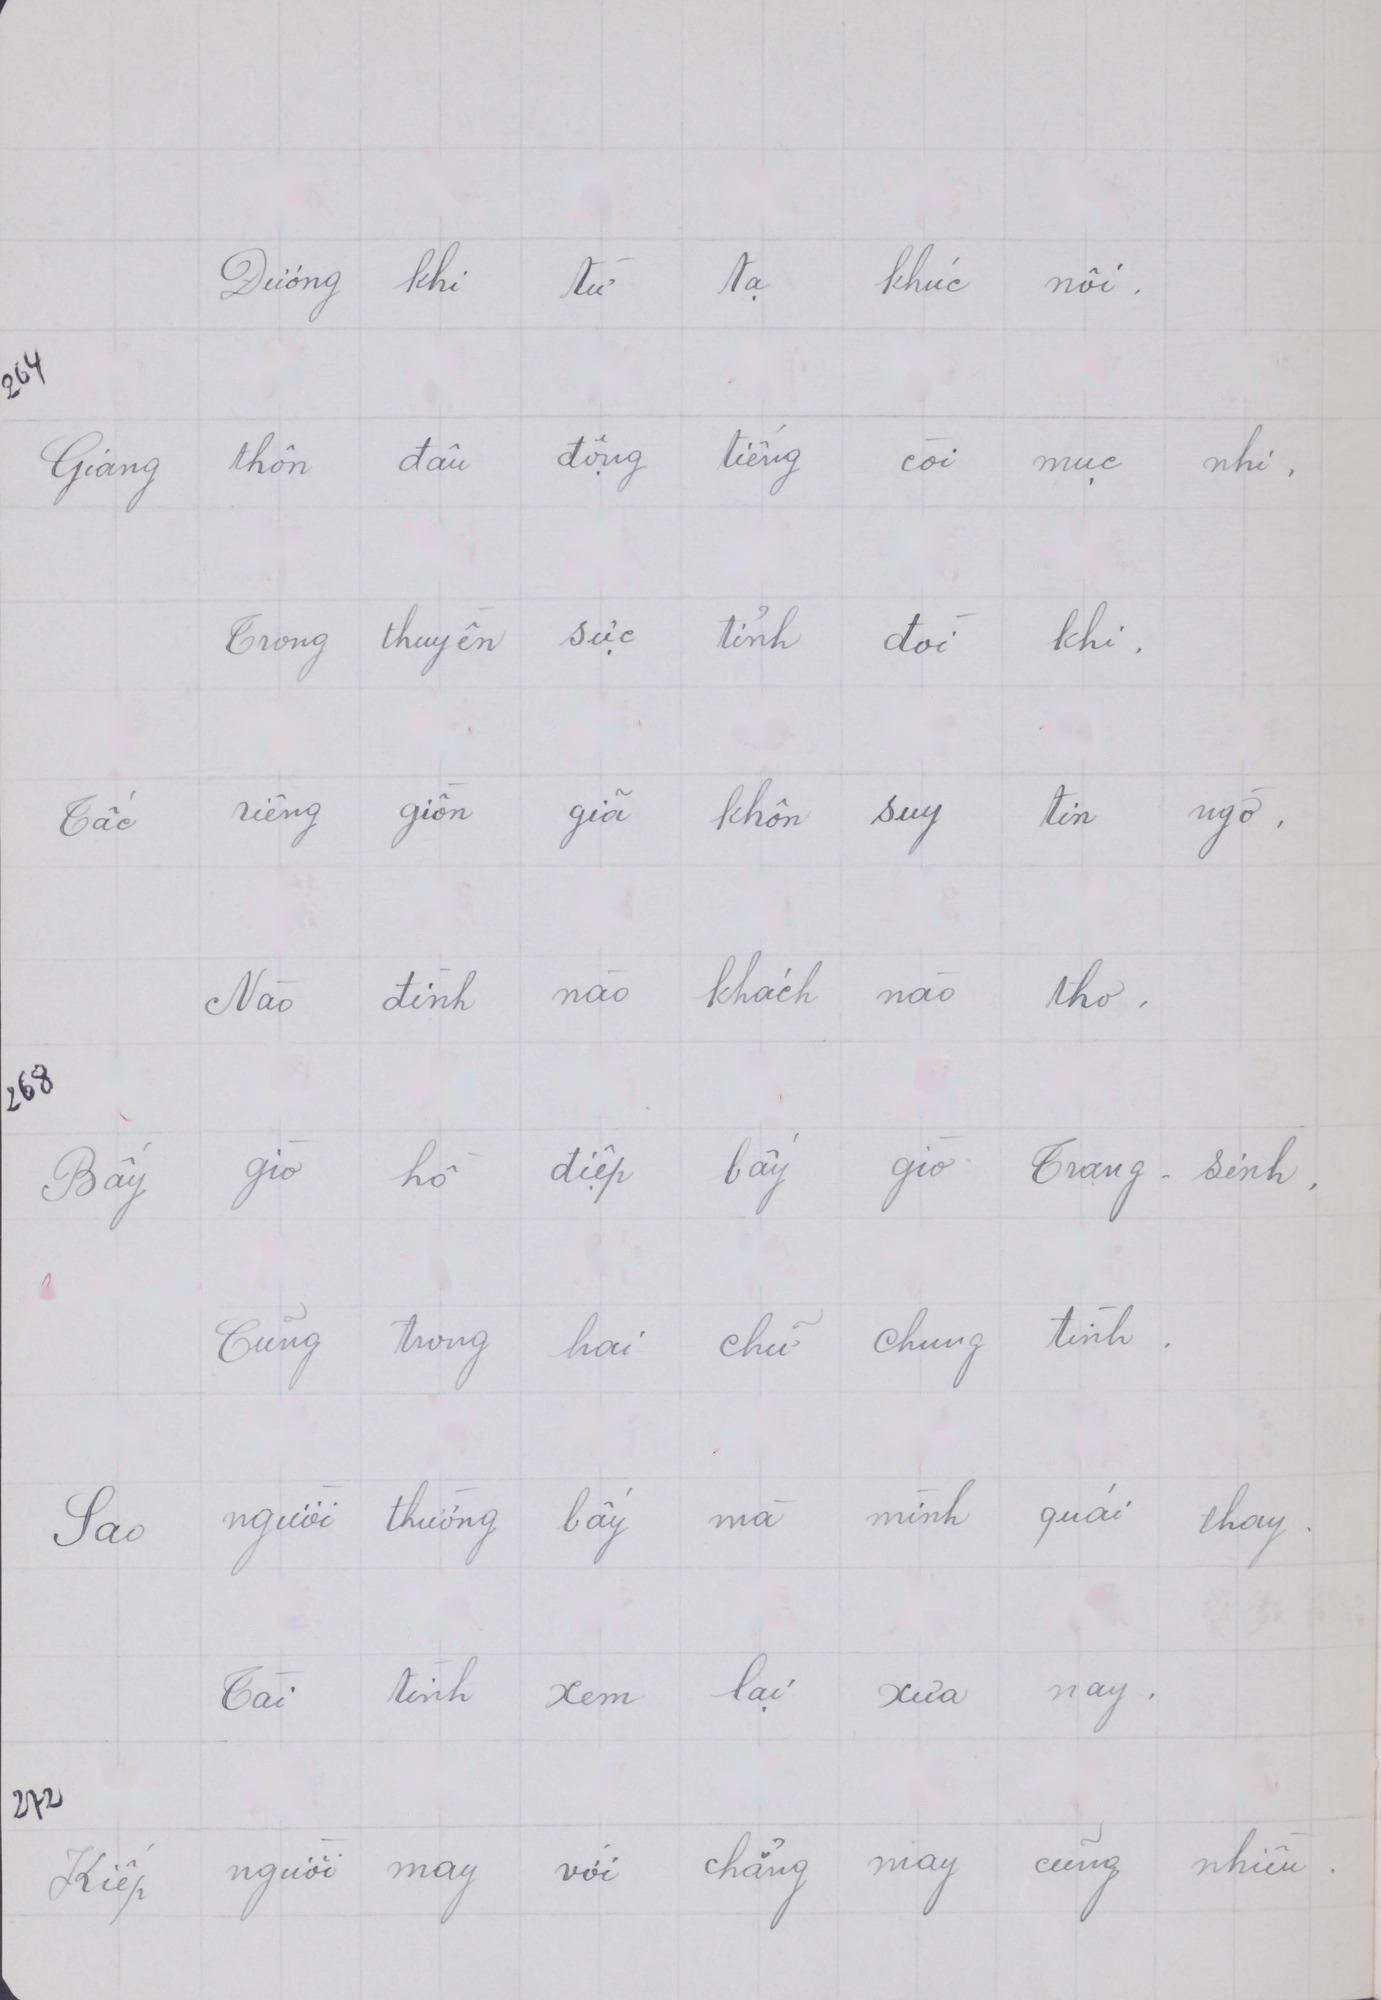 Đương khi từ tạ khúc nôi.
264
Giang thôn đâu động tiếng còi mục nhi.
Trong thuyền sực tỉnh đòi khi.
Tấc riêng giồn giã khôn suy tin ngờ.
Nào đình nào khách nào thơ.
268
Bấy giờ hồ điệp bấy giờ Trang-sinh.
Cũng trong hai chữ chung tình.
Sao người thường bấy mà mình quái thay.
Tài tình xem lại xưa nay.
272
Kiếp người may với chẳng may cũng nhiều.